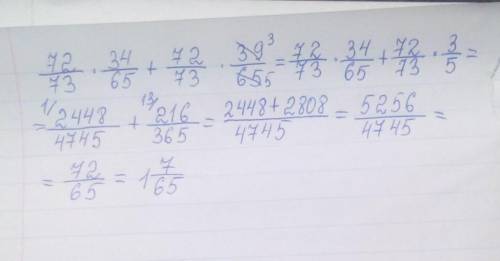 72/73 · 34/65 + 72/73 · 39³/65₅ = 72/73 · 34/65 + 72/73 · 3/5 =
= ¹⁄2448/4745 + ¹³⁄216/365 = 2448+2808/4745 = 5256/4745 =
= 72/65 = 1 7/65